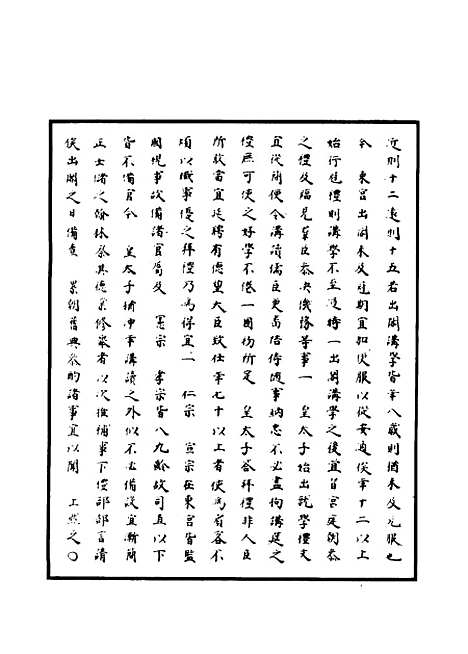 近則十二遠則十五若出閣講學皆年八歲則猶未及冠服也
今　東宮出閣未及冠期宜如便服以從安適俟年十二以上
始行冠禮則講學不至後時一出閣講學之後宜自宮庭朝恭
之禮及臨見羣臣恭決機務等事一　皇太子始出就學禮文
宜從簡便令講讀儒臣更番陪侍隨事納忠不必盡拘講筵之
儀庶可使之好學不倦一國初所定　皇太子答拜禮非人臣
所敢當宜廷聘有德望大臣致仕年七十以上者使為賓客不
煩以職事優之拜禮乃為得宜一　仁宗　宣宗在東宮皆監
國視事故備諸官局及　憲宗　孝宗皆八九齡故司直以下
皆不備官今　皇太子擴沖年講讀之外似不必備設宜漸簡
正士儲之翰林恭其德業修著者以次後補事下禮部部言請
俟出閣之日備查　累朝舊典參酌諸事宜以聞　上然之〇